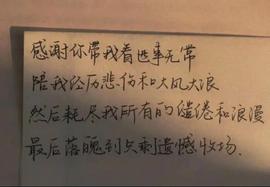 感谢你带我看透事无常
陪我经历悲伤和大风大浪
然后耗尽我所有的缱绻和浪漫
最后落魄到只剩遗憾收场.